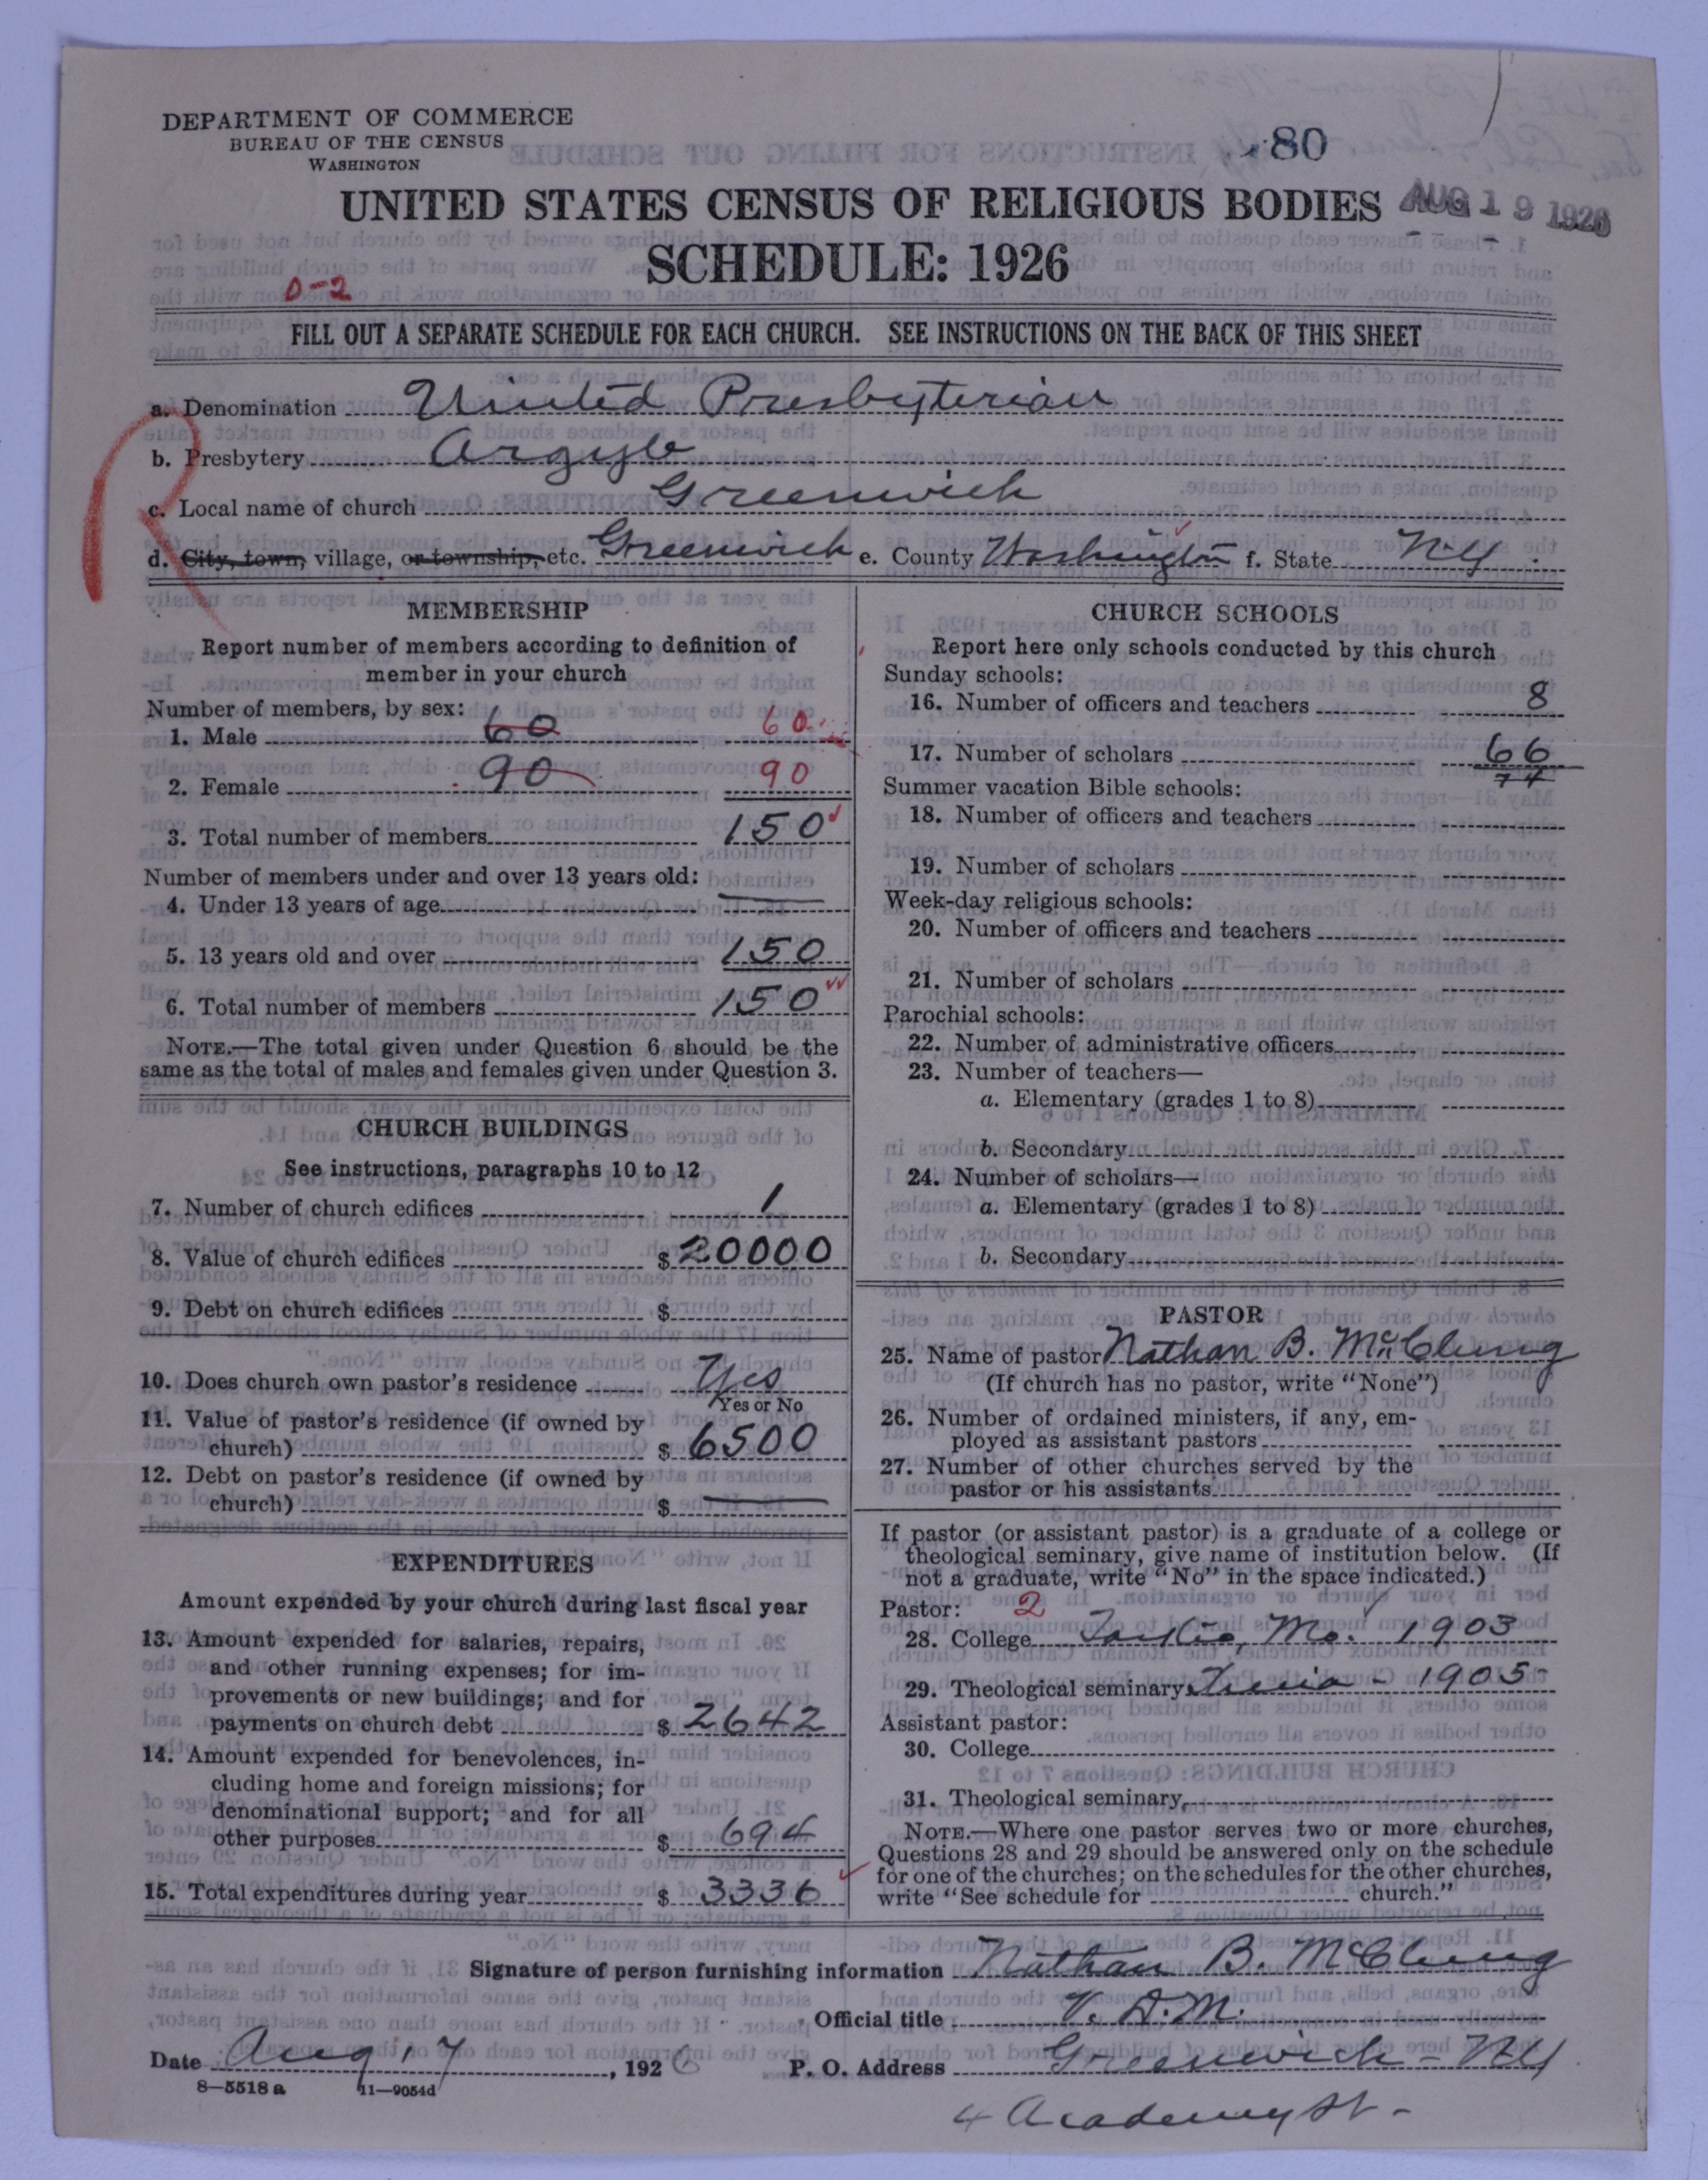 DEPARTMENT OF COMMERCE
BUREAU OF THE CENSUS
WASHINGTON
80
UNITED STATES CENSUS OF RELIGIOUS BODIES
AUG 19 1926
SCHEDULE: 1926
0-2
FILL OUT A SEPARATE SCHEDULE FOR EACH CHURCH. SEE INSTRUCTIONS ON THE BACK OF THIS SHEET
a. Denomination United Presbyterian
b. Presbytery Argyle
c. Local name of church Greenwich
R
d. City, town, village, or township, etc. Greenwich e. County Washington f. State N.Y.
MEMBERSHIP
Report number of members according to definition of
member in your church
Number of members, by sex:
1. Male 60 60
2. Female 90 90
3. Total number of members 150
Number of members under and over 13 years old:
4. Under 13 years of age —
5. 13 years old and over 150
6. Total number of members 150
NOTE.—The total given under Question 6 should be the
same as the total of males and females given under Question 3.
CHURCH BUILDINGS
See instructions, paragraphs 10 to 12
7. Number of church edifices 1
8. Value of church edifices $ 20000
9. Debt on church edifices $
10. Does church own pastor's residence Yes
Yes or No
11. Value of pastor's residence (if owned by
church) $ 6500
12. Debt on pastor's residence (if owned by
church) $ —
EXPENDITURES
Amount expended by your church during last fiscal year
13. Amount expended for salaries, repairs,
and other running expenses; for im-
provements or new buildings; and for
payments on church debt $ 2642
14. Amount expended for benevolences, in-
cluding home and foreign missions; for
denominational support; and for all
other purposes $ 694
15. Total expenditures during year $ 3336
CHURCH SCHOOLS
Report here only schools conducted by this church
Sunday schools:
16. Number of officers and teachers 8
17. Number of scholars 66
74
Summer vacation Bible schools:
18. Number of officers and teachers
19. Number of scholars
Week-day religious schools:
20. Number of officers and teachers
21. Number of scholars
Parochial schools:
22. Number of administrative officers
23. Number of teachers—
a. Elementary (grades 1 to 8)
b. Secondary
24. Number of scholars—
a. Elementary (grades 1 to 8)
b. Secondary
PASTOR
25. Name of pastor Nathan B. McClung
(If church has no pastor, write "None")
26. Number of ordained ministers, if any, em-
ployed as assistant pastors
27. Number of other churches served by the
pastor or his assistants
If pastor (or assistant pastor) is a graduate of a college or
theological seminary, give name of institution below. (If
not a graduate, write "No" in the space indicated.)
Pastor: 2
28. College Tarkio, Mo. 1903
29. Theological seminary Xenia - 1905-
Assistant pastor:
30. College
31. Theological seminary,
NOTE.—Where one pastor serves two or more churches,
Questions 28 and 29 should be answered only on the schedule
for one of the churches; on the schedules for the other churches,
write "See schedule for church."
Signature of person furnishing information Nathan B. McClung
Official title V. D. M.
Date Aug 17, 1926 P. O. Address Greenwich - NY
8—5518 a 11—9054d
4 Academy St -